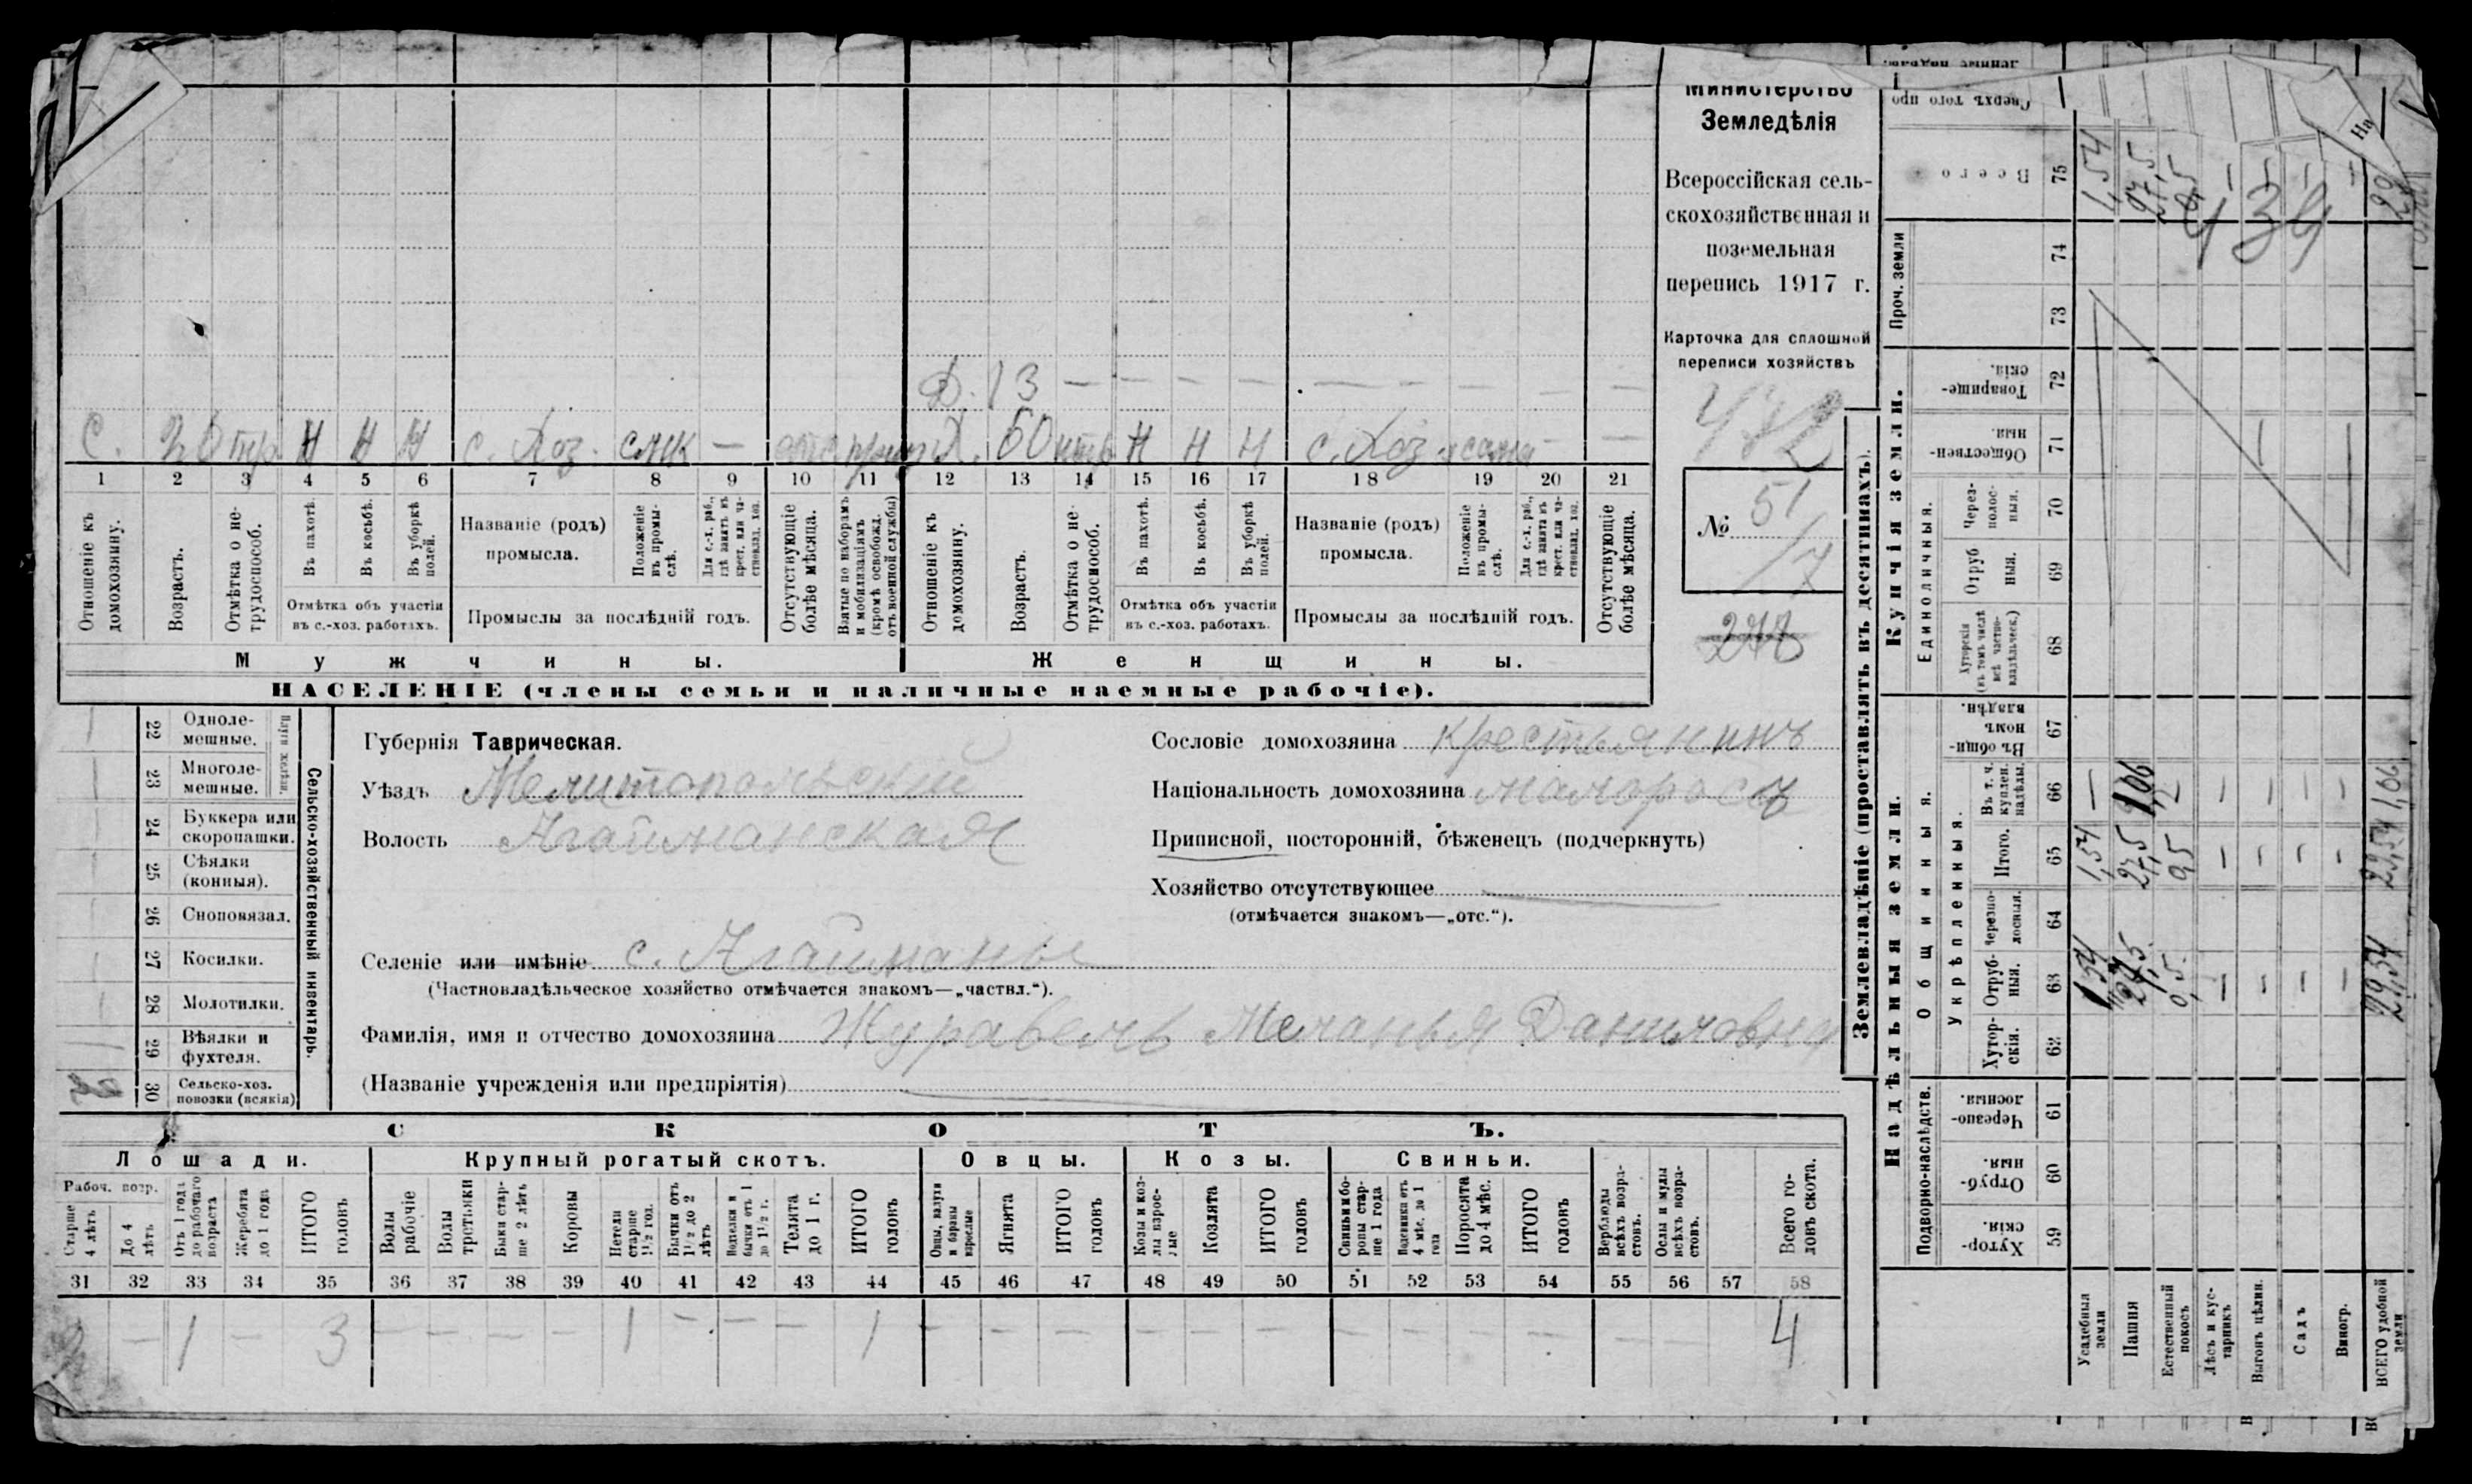 Министерство
Земледѣлія
Всероссійская сель-
скохозяйственная и
поземельная
перепись 1917 г.
Карточка для сплошной
переписи хозяйствъ
№ 51
/7
278
Д. 13 — — — — — — — — —
С. тр Н Н Н с. Хоз. — Д. 60 Н Н Н с. Хоз. — —
1 2 3 4 5 6 7 8 9 10 11 12 13 14 15 16 17 18 19 20 21
Отношеніе къ домохозяину.
Возрастъ.
Отмѣтка о не-трудоспособ.
Въ пахотѣ.
Въ косьбѣ.
Въ уборкѣ полей.
Отмѣтка объ участіи
въ с.-хоз. работахъ.
Названіе (родъ)
промысла.
Положеніе въ промы-слѣ.
Для с.-х. раб., гдѣ занятъ въ крест. или ча-стновлад. хоз.
Промыслы за послѣдній годъ.
Отсутствующіе болѣе мѣсяца.
Взятые по наборамъ и мобилизаціямъ (кромѣ освобожд. отъ военной службы)
Отношеніе къ домохозяину.
Возрастъ.
Отмѣтка о не-трудоспособ.
Въ пахотѣ.
Въ косьбѣ.
Въ уборкѣ полей.
Отмѣтка объ участіи
въ с.-хоз. работахъ.
Названіе (родъ)
промысла.
Положеніе въ промы-слѣ.
Для с.-х. раб., гдѣ занята въ крест. или ча-стновлад. хоз.
Промыслы за послѣдній годъ.
Отсутствующіе болѣе мѣсяца.
Мужчины. Женщины.
НАСЕЛЕНІЕ (члены семьи и наличные наемные рабочіе).
Сельско-хозяйственный инвентарь.
22 Одноле-мешные.
23 Многоле-мешные.
24 Буккера или скоропашки.
25 Сѣялки (конныя).
26 Сноповязал.
27 Косилки.
28 Молотилки.
29 Вѣялки и фухтеля.
30 Сельско-хоз. повозки (всякія)
Губернія Таврическая.
Уѣздъ Мелитопольскій
Волость Агайманская
Селеніе или имѣніе с. Агайманы
(Частновладѣльческое хозяйство отмѣчается знакомъ—„частвл.“).
Фамилія, имя и отчество домохозяина Журавель Меланья Даниловна
(Названіе учрежденія или предпріятія)
Сословіе домохозяина крестьянинъ
Національность домохозяина малороссъ
Приписной, посторонній, бѣженецъ (подчеркнуть)
Хозяйство отсутствующее
(отмѣчается знакомъ—„отс.“).
СКОТЪ.
Лошади. Крупный рогатый скотъ. Овцы. Козы. Свиньи.
Рабоч. возр.
Старше 4 лѣтъ
До 4 лѣтъ
Отъ 1 года до рабочаго возраста
Жеребята до 1 года
ИТОГО головъ
Волы рабочіе
Волы третьяки
Быки стар-ше 2 лѣтъ
Коровы
Нетели старше 1½ год.
Бычки отъ 1½ до 2 лѣтъ
Телки и бычки отъ 1 до 1½ г.
Телята до 1 г.
ИТОГО головъ
Овцы, валухи и бараны взрослые
Ягнята
ИТОГО головъ
Козы и коз-лы взрос-лые
Козлята
ИТОГО головъ
Свиньи и бо-ровы стар-ше 1 года
Подсвинки отъ 4 мѣс. до 1 года
Поросята до 4 мѣс.
ИТОГО головъ
Верблюды всѣхъ возра-стовъ.
Ослы и мулы всѣхъ возра-стовъ.
Всего го-ловъ скота.
31 32 33 34 35 36 37 38 39 40 41 42 43 44 45 46 47 48 49 50 51 52 53 54 55 56 57 58
— 1 — 3 — — — — 1 — — — 1 — — — — — — — — — — — — 4
Землевладѣніе (проставлять въ десятинахъ).
Надѣльныя земли. Купчія земли. Проч. земли
Подворно-наслѣдств.
Общинныя.
Укрѣпленныя.
Единоличныя.
Хутор-скія. 59
Отруб-ныя. 60
Черезпо-лосныя. 61
Хутор-скія. 62
Отруб-ныя. 63
Черезпо-лосныя. 64
Итого. 65
Въ т. ч. куплен. надѣлы. 66
Въ общин-номъ владѣн. 67
Хуторскія (въ томъ числѣ всѣ частно-владѣльческ.) 68
Отруб ныя. 69
Через-полос-ныя. 70
Обществен-ныя. 71
Товарище-скія. 72
73
74
Всего 75
Сверхъ того про
Усадебныя земли 1,54 1,54 — 1,54
Пашня 27,5 27,5
Естественный покосъ 0,5 0,5 0,5
Лѣсъ и кус-тарникъ — — — —
Выгонъ цѣлин. — — — —
Садъ — — — —
Виногр. — — —
ВСЕГО удобной земли 29,54 29,54 1,06